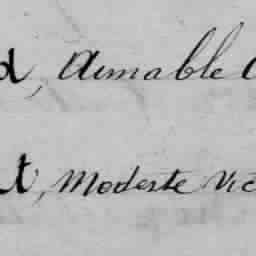 d, Aimable
t, Modeste Vic